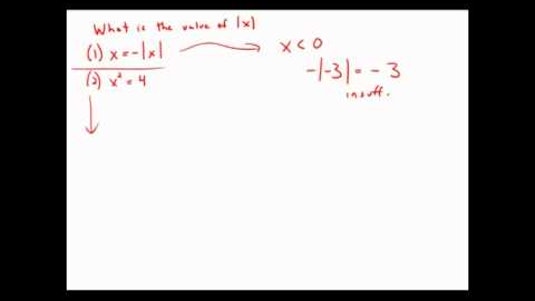 What is the value of |x|
(1) x = -|x|
x < 0
(2) x² = 4
-|-3| = -3
insuff.